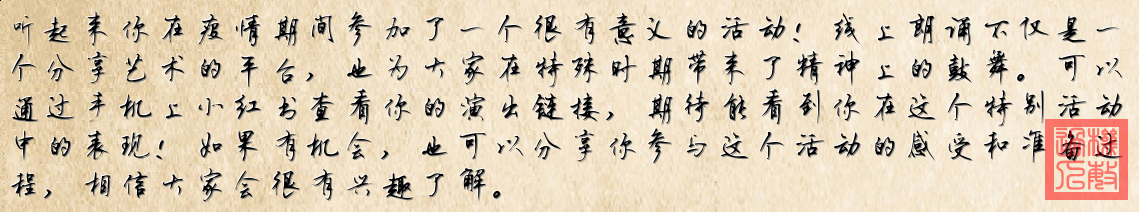 听起来你在疫情期间参加了一个很有意义的活动！线上朗诵不仅是一
个分享艺术的平台，也为大家在特殊时期带来了精神上的鼓舞。可以
通过手机上小红书查看你的演出链接，期待能看到你在这个特别活动
中的表现！如果有机会，也可以分享你参与这个活动的感受和准备过
程，相信大家会很有兴趣了解。